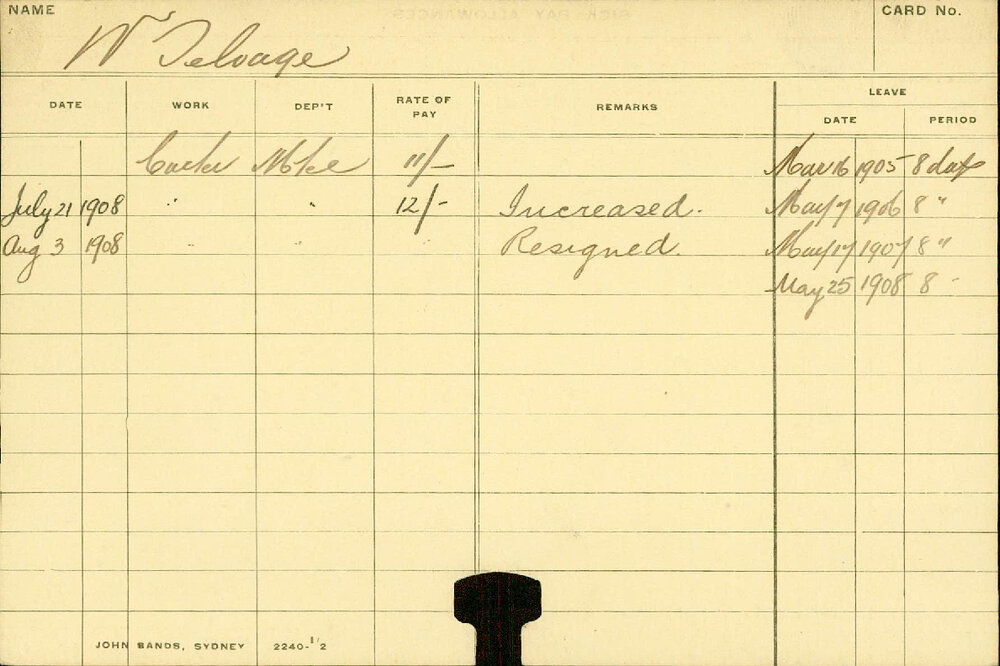 NAME
CARD No.
Wm Selvage
DATE WORK DEP'T RATE OF PAY REMARKS LEAVE
DATE PERIOD
11/- Mar 16 1905 8 days
July 21 1908 " " 12/- Increased. May 7 1906 8 "
Aug 3 1908 " " " Resigned. May 17 1907 8 "
May 25 1908 8 "
JOHN SANDS, SYDNEY 2240-1/2